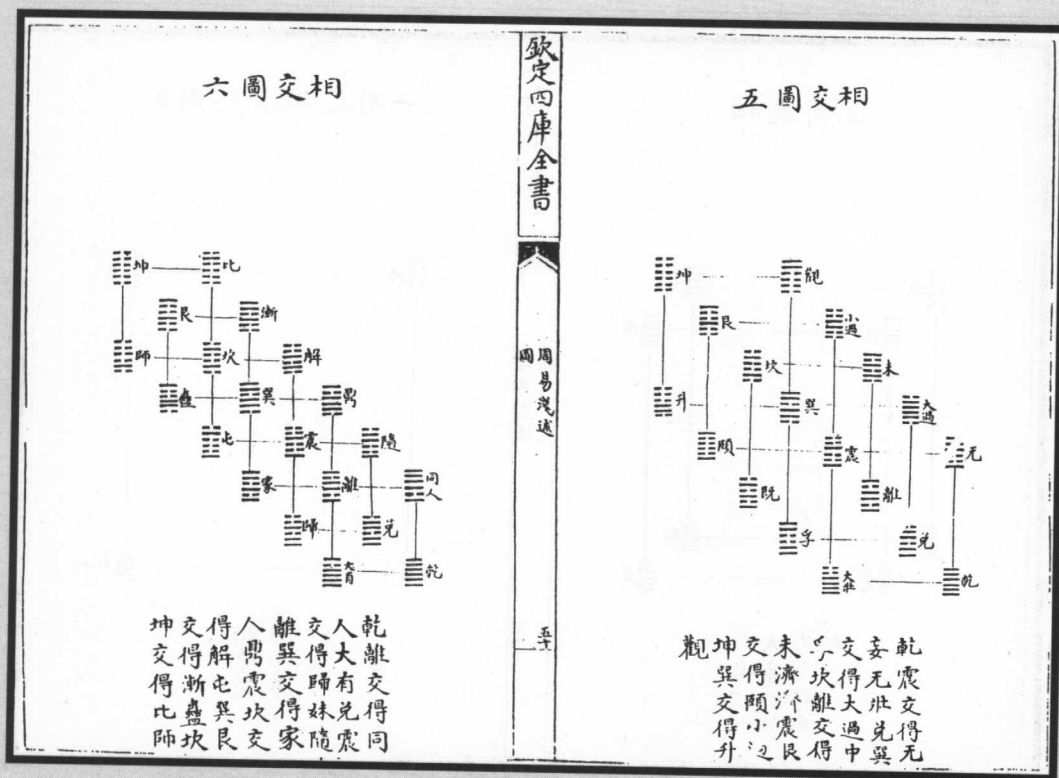 相交圖五
坤 觀
艮 小過
坎 未
升 巽 大過
頤 震 无
既 離
孚 兑
大壯 乾
乾震交得无
妄无壯兑巽
交得大過中
坎離交得
未濟 震艮
交得頤小
坤巽交得升
觀
欽定四庫全書
周易淺述
圖
五十一
相交圖六
坤 比
艮 漸
師 坎 解
蠱 巽 鼎
屯 震 隨
家 離 同人
歸 兑
大有 乾
乾離交得同
人大有兑震
交得歸妹隨
離巽交得家
人鼎震坎交
得解屯巽艮
交得漸蠱坎
坤交得比師